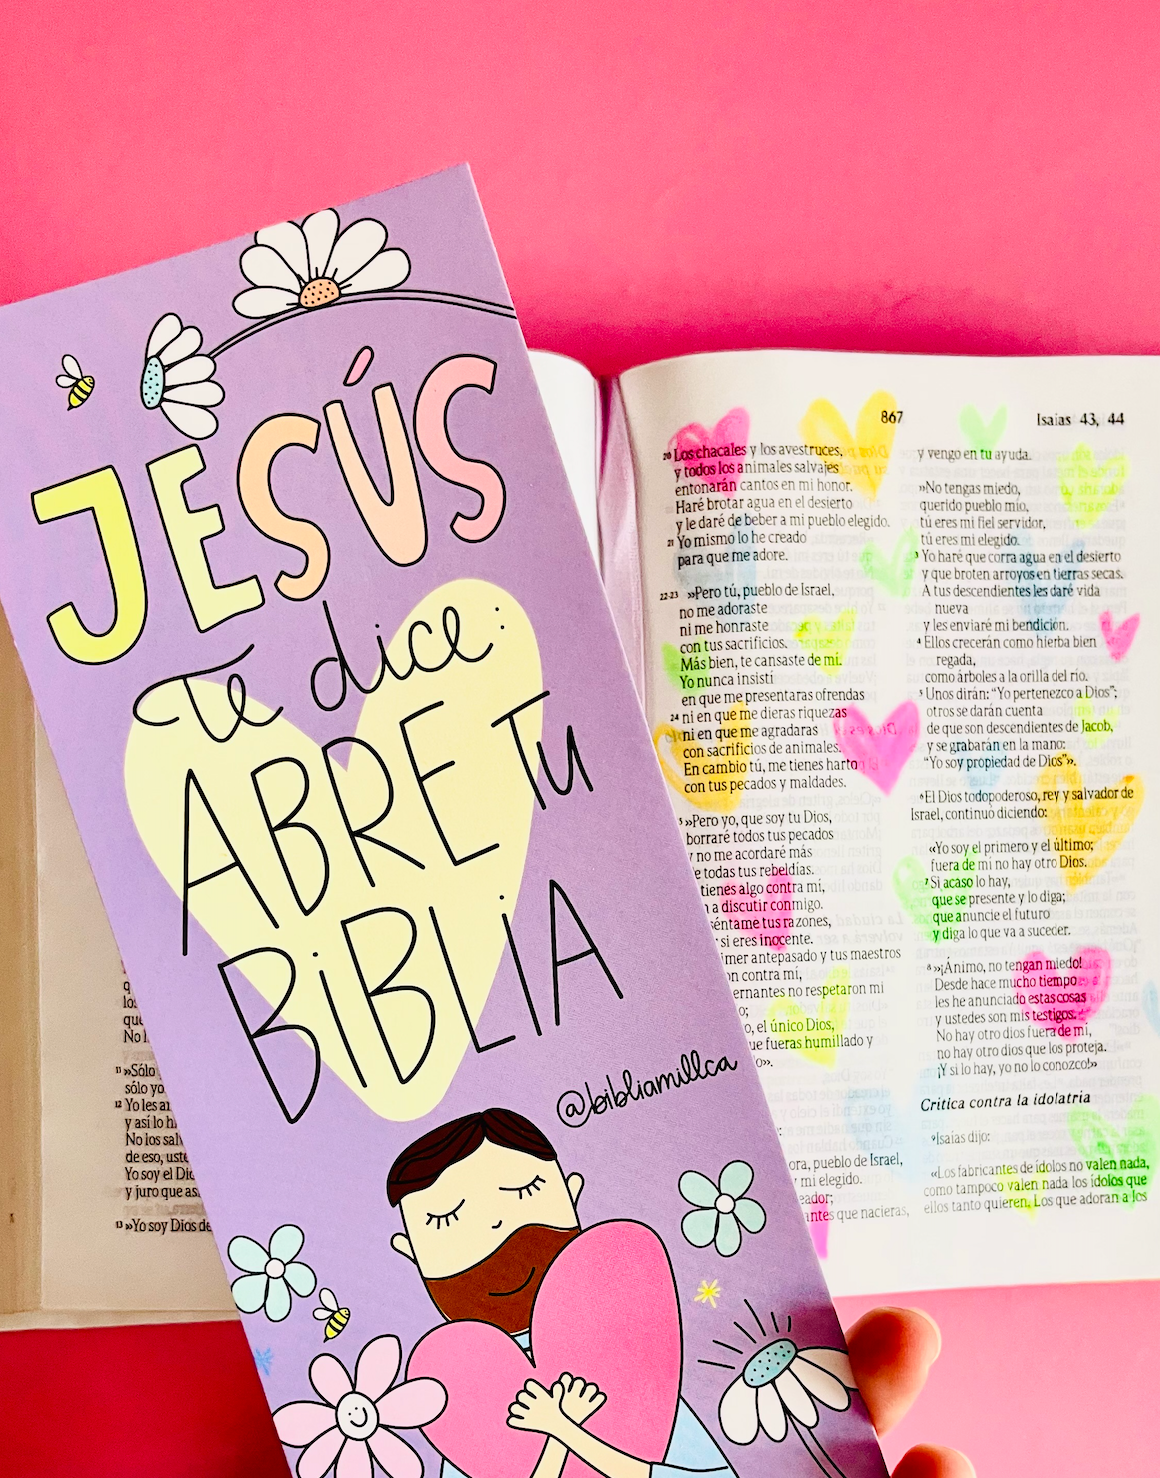 JESÚS
te dice:
ABRE TU
BiBLiA
@bibliamillca
los
que
No l
11 »Sólo
sólo yo
12 Yo les a
y así lo h
No los sal
de eso, uste
Yo soy el Di
y juro que as
13 »Yo soy Dios de
867
Isaías 43, 44
20 Los chacales y los avestruces,
y todos los animales salvajes
entonarán cantos en mi honor.
Haré brotar agua en el desierto
y le daré de beber a mi pueblo elegido.
21 Yo mismo lo he creado
para que me adore.
22-23 »Pero tú, pueblo de Israel,
no me adoraste
ni me honraste
con tus sacrificios.
Más bien, te cansaste de mí.
Yo nunca insistí
en que me presentaras ofrendas
24 ni en que me dieras riquezas
ni en que me agradaras
con sacrificios de animales.
En cambio tú, me tienes harto
con tus pecados y maldades.
5 »Pero yo, que soy tu Dios,
borraré todos tus pecados
y no me acordaré más
e todas tus rebeldías.
tienes algo contra mí,
n a discutir conmigo.
séntame tus razones,
si eres inocente.
imer antepasado y tus maestros
on contra mí,
ernantes no respetaron mi
o;
o, el único Dios,
ue fueras humillado y
o».
:
ora, pueblo de Israel,
mi elegido.
eador;
antes que nacieras,
y vengo en tu ayuda.
»No tengas miedo,
querido pueblo mío,
tú eres mi fiel servidor,
tú eres mi elegido.
3 Yo haré que corra agua en el desierto
y que broten arroyos en tierras secas.
A tus descendientes les daré vida
nueva
y les enviaré mi bendición.
4 Ellos crecerán como hierba bien
regada,
como árboles a la orilla del río.
5 Unos dirán: “Yo pertenezco a Dios”;
otros se darán cuenta
de que son descendientes de Jacob,
y se grabarán en la mano:
“Yo soy propiedad de Dios”».
6 El Dios todopoderoso, rey y salvador de
Israel, continuó diciendo:
«Yo soy el primero y el último;
fuera de mí no hay otro Dios.
7 Si acaso lo hay,
que se presente y lo diga;
que anuncie el futuro
y diga lo que va a suceder.
8 »¡Ánimo, no tengan miedo!
Desde hace mucho tiempo
les he anunciado estas cosas
y ustedes son mis testigos.
No hay otro dios fuera de mí,
no hay otro dios que los proteja.
¡Y si lo hay, yo no lo conozco!»
Crítica contra la idolatría
9 Isaías dijo:
«Los fabricantes de ídolos no valen nada,
como tampoco valen nada los ídolos que
ellos tanto quieren. Los que adoran a los